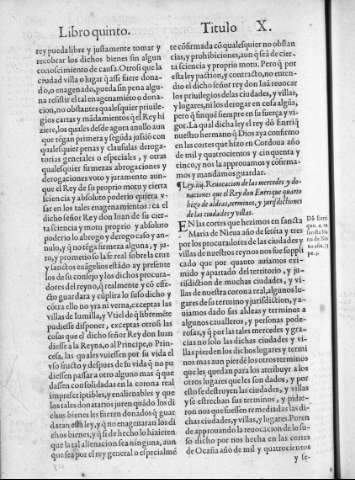 Libro quinto. Titulo X.
rey pueda libre y justamente tomar y
recobrar los dichos bienes sin algun
conoscimiento de causa. Otrosi que la
ciudad villa o lugar q̃ assi fuere dona-
do, o enagenado, pueda sin pena algu-
na resistir el tal enagenamiẽto o dona-
cion, no obstãtes qualesquier priuile-
gios cartas y mãdamiẽtos q̃ el Rey hi
ziere, los quales desde agora anullo aun
que tẽgan primera y segũda jussiõ con
qualesquier penas y clausulas deroga-
torias generales o especiales, y otras
qualesquier firmezas abrogaciones y
derogaciones voto y juramento aun-
que el Rey de su proprio motu y cierta
sciencia y absoluto poderio quiera v-
sar en los tales enagenamiẽtos: ca el
dicho señor Rey don Iuan de su cier-
ta sciencia y motu proprio y absoluto
poderio lo abrogo y derogo caso y an-
nulo, y q̃ no tẽga firmeza alguna, y ju-
ro, y prometio so la fe real sobre la cruz
y sanctos euãgelios estãdo ay presentes
los de su consejo y los dichos procura-
dores del reyno, q̃ realmente y cõ effe-
cto guardara y cũplira lo suso dicho y
cõtra ello no yra ni verna, exceptas las
villas de Iumilla, y Vtiel de q̃ libremẽte
pudiesse disponer, exceptas otrosi las
cosas que el dicho señor Rey don Iuan
diesse a la Reyna, o al Principe, o Prin-
cesa, las quales vuiessen por su vida el
vso fructo y despues de su vida q̃ no pu
diessen passar a otro alguno mas q̃ que
dassen consolidadas en la corona real
imprescriptibles, y enalienables y que
los tales donatarios juren quãdo los di
chos bienes les fueren donados q̃ guar
daran esta ley, y q̃ no enagenaran los di
chos bienes, y q̃ si de hecho lo hizieren
que la tal alienacion sea ninguna, aun
que sea por el rey general o especialmẽ
te cõfirmada cõ qualesquier no obstan
cias, y prohibiciones, aun q̃ sea de cier-
ta sciencia y proprio motu. Pero q̃ por
esta ley paction, y contracto, no enten-
dio el dicho señor rey don Iuã reuocar
los priuilegios de las ciudades, y villas,
y lugares, ni los derogar en cosa algũa,
pero q̃ finquẽ siempre en su fuerça y vi-
gor. La qual dicha ley el rey dõ Enrriq̃
nuestro hermano q̃ Dios aya confirmo
en las cortes que hizo en Cordoua año
de mil y quatrocientos y cinquenta y
cinco, y nos la approuamos y cõfirma-
mos y mandamos guardar.
¶ Ley. iiij. Reuocacion de las mercedes y do-
naciones que el Rey don Enrrique quarto
hizo de aldeas, terminos, y jurisdictiones
de las ciudades y villas.
EN las cortes que hezimos en sancta
Maria de Nieua año de setẽta y tres
por los procuradores de las ciudades y
villas de nuestros reynos nos fue suppli
cado que por quanto auiamos exi-
mido y apartado del territorio, y ju-
risdiction de muchas ciudades, y vi-
llas de nuestra corona real, algunos lu-
gares de su termino y jurisdiction, y a-
uiamos dado sus aldeas y terminos a
algunos caualleros, y personas pode-
rosas, y q̃ por las tales mercedes y gra-
cias no solo las dichas ciudades y vi-
llas pierden los dichos lugares y termi
nos mas aun pierdẽ los otros terminos
que les quedan para los atribuyr a los
otros lugares que les son dados, y por
esto se destruyen las ciudades, y villas
y se estrechan sus terminos, y pidie-
ron nos que fuessen remediadas las di-
chas ciudades, y villas, y lugares. Poren
de approuando la reuocacion de lo su-
so dicho por nos hecha en las cortes
de Ocaña año de mil y quatrocientos
y se-
Dõ Enrr